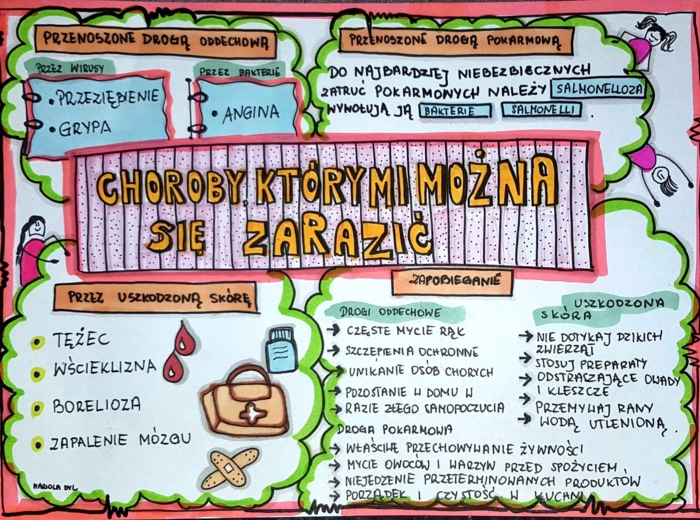 PRZENOSZONE DROGĄ ODDECHOWĄ
PRZEZ WIRUSY
• PRZEZIĘBIENIE
• GRYPA
PRZEZ BAKTERIE
• ANGINA
PRZENOSZONE DROGĄ POKARMOWĄ
DO NAJBARDZIEJ NIEBEZBIECZNYCH
ZATRUĆ POKARMOWYCH NALEŻY SALMONELLOZA
WYWOŁUJĄ JĄ BAKTERIE SALMONELLI .
CHOROBY, KTÓRYMI MOŻNA
SIĘ ZARAZIĆ
PRZEZ USZKODZONĄ SKÓRĘ
TĘŻEC
WŚCIEKLIZNA
BORELIOZA
ZAPALENIE MÓZGU
MARIOLA DYL
ZAPOBIEGANIE
DROGI ODDECHOWE
→ CZĘSTE MYCIE RĄK
→ SZCZEPIENIA OCHRONNE
→ UNIKANIE OSÓB CHORYCH
→ POZOSTANIE W DOMU W
→ RAZIE ZŁEGO SAMOPOCZUCIA
DROGA POKARMOWA
→ WŁAŚCIWE PRZECHOWYWANIE ŻYWNOŚCI
→ MYCIE OWOCÓW I WARZYW PRZED SPOŻYCIEM,
→ NIEJEDZENIE PRZETERMINOWANYCH PRODUKTÓW
→ PORZĄDEK I CZYSTOŚĆ W KUCHNI
USZKODZONA
SKÓRA
→ NIE DOTYKAJ DZIKICH
ZWIERZĄT
→ STOSUJ PREPARATY
→ ODSTRASZAJĄCE OWADY
I KLESZCZE
→ PRZEMYWAJ RANY
→ WODĄ UTLENIONĄ.